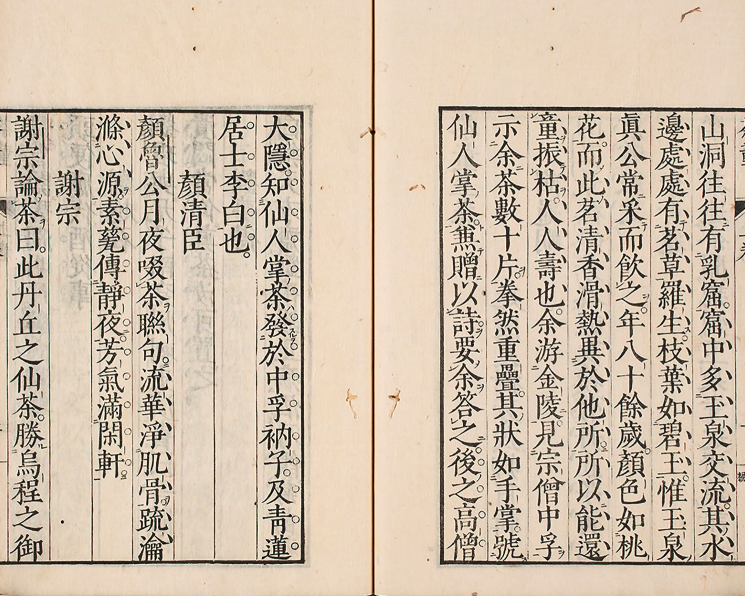 山洞往往有乳窟窟中多玉泉交流其水
邊處處有茗草羅生枝葉如碧玉惟玉泉
眞公常采而飮之年八十餘歲顏色如桃
花而此茗清香滑熱異於他所所以能還
童振枯人人壽也余游金陵見宗僧中孚
示余茶數十片拳然重疊其狀如手掌號
仙人掌茶兼贈以詩要余答之後之高僧
大隱知仙人掌茶發於中孚衲子及靑蓮
居士李白也
顏清臣
顏魯公月夜啜茶聯句流華淨肌骨疏瀹
滌心源素甆傳靜夜芳氣滿閑軒
謝宗
謝宗論茶曰此丹丘之仙茶勝烏程之御